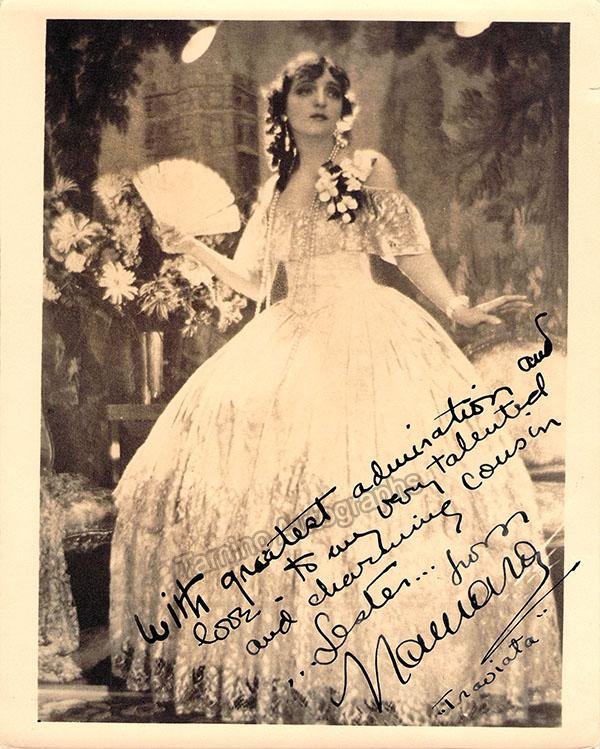 With greatest admiration and
love - to my very talented
and charming cousin
...Lester... from
Namara
"Traviata"
Tamino Autographs